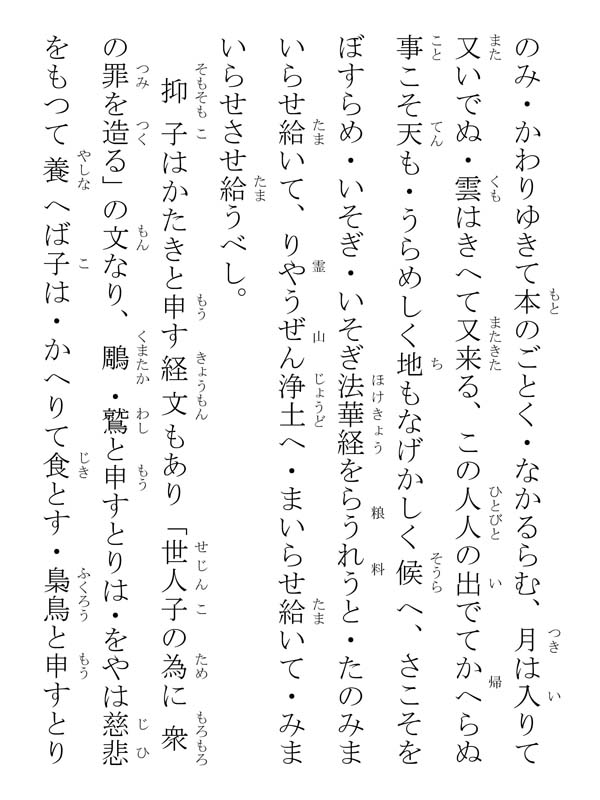 のみ・かわりゆきて本のごとく・なかるらむ、月は入りて
又いでぬ・雲はきへて又来る、この人人の出でてかへらぬ
事こそ天も・うらめしく地もなげかしく候へ、さこそを
ぼすらめ・いそぎ・いそぎ法華経をらうれうと・たのみま
いらせ給いて、りやうぜん浄土へ・まいらせ給いて・みま
いらせさせ給うべし。
抑子はかたきと申す経文もあり「世人子の為に衆
の罪を造る」の文なり、鵰・鷲と申すとりは・をやは慈悲
をもつて養へば子は・かへりて食とす・梟鳥と申すとり